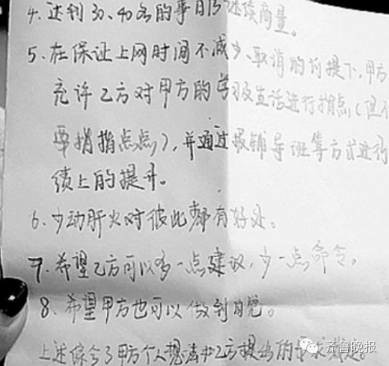 4. 达到30、40名的事自后继续商量。
5. 在保证上网时间不减少、取消的前提下,甲方
允许乙方对甲方的学习及生活进行指点,(但不
要指指点点),并通过报辅导班等方式进行
绩上的提升。
6. 少动肝火对彼此都有好处。
7. 希望乙方可以多一点建议,少一点命令。
8. 希望甲方也可以做到自觉。
上述综合了甲方个人想法和乙方提出的
齐鲁晚报